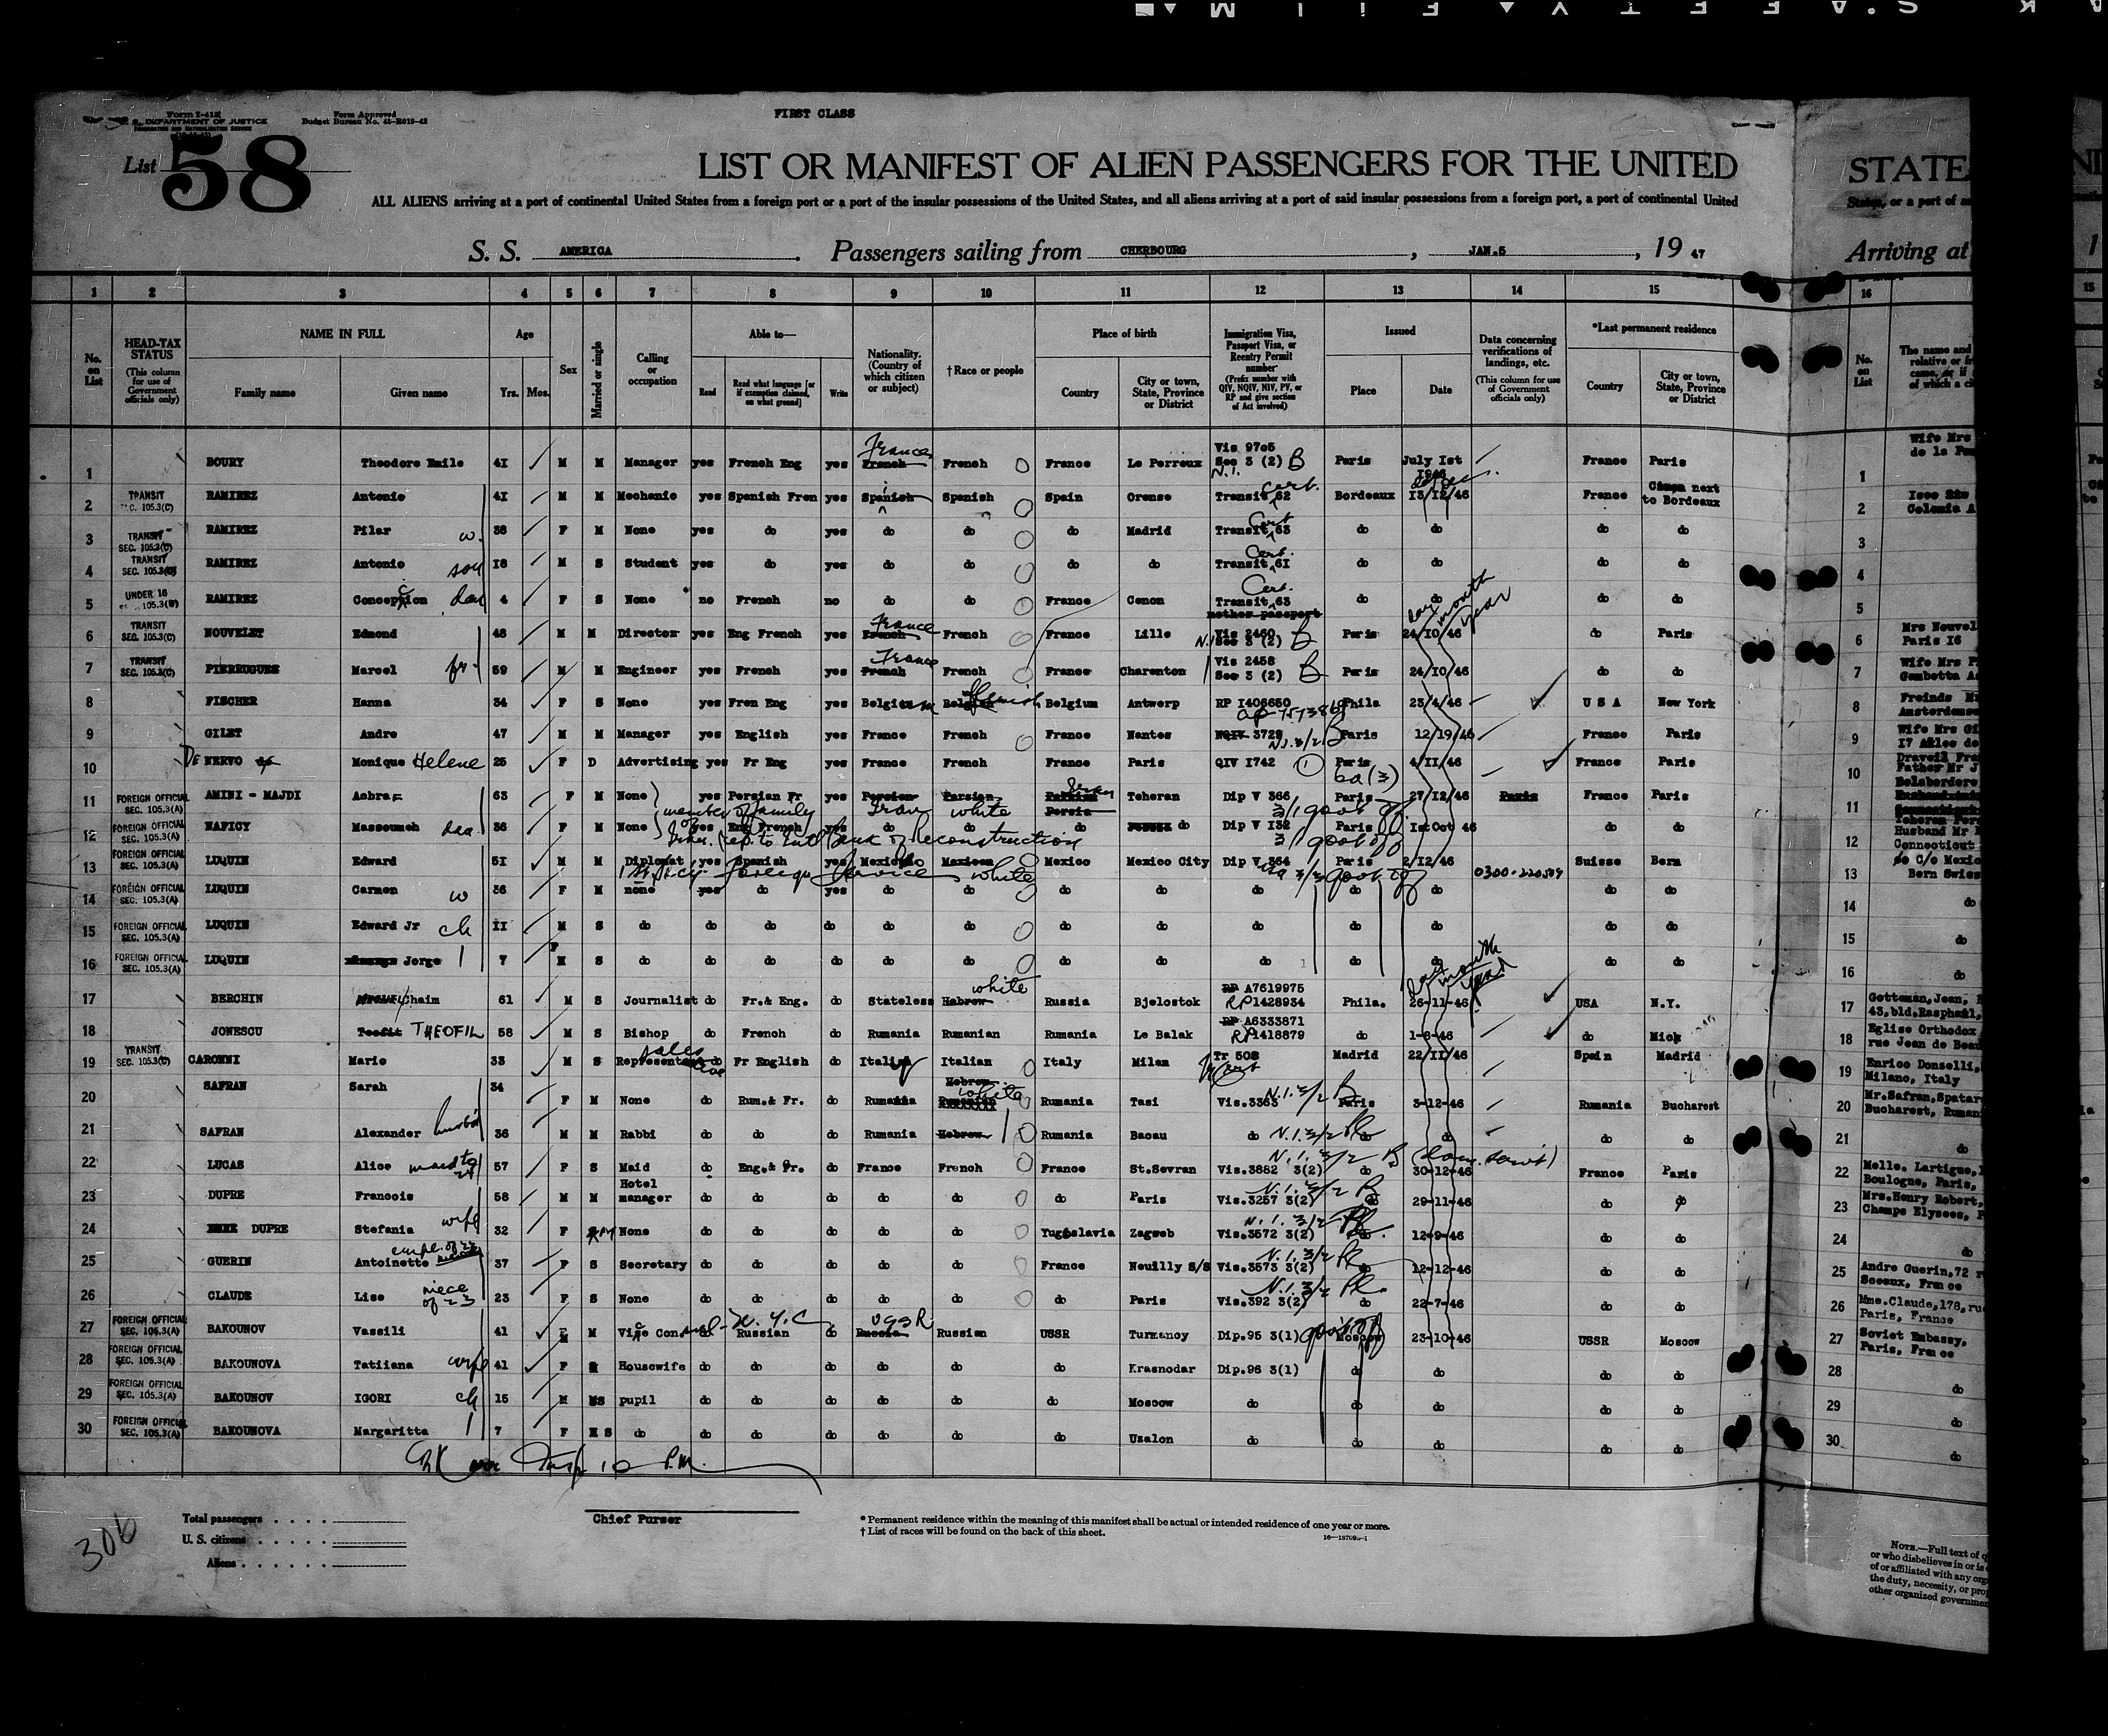 Form I-415
U. S. DEPARTMENT OF JUSTICE
IMMIGRATION AND NATURALIZATION SERVICE
Form Approved
Budget Bureau No. 43-R019-42
FIRST CLASS
List 58
LIST OR MANIFEST OF ALIEN PASSENGERS FOR THE UNITED
STATE
ALL ALIENS arriving at a port of continental United States from a foreign port or a port of the insular possessions of the United States, and all aliens arriving at a port of said insular possessions from a foreign port, a port of continental United
States, or a port of
S. S. AMERICA. Passengers sailing from CHERBOURG, JAN.5, 19 47
Arriving at
1 2 3 4 5 6 7 8 9 10 11 12 13 14 15 16
No. on List
HEAD-TAX STATUS (This column for use of Government officials only)
NAME IN FULL Family name Given name
Age Yrs. Mos.
Sex
Married or single
Calling or occupation
Able to— Read Read what language [or if exemption claimed, on what ground] Write
Nationality. (Country of which citizen or subject)
†Race or people
Place of birth Country City or town, State, Province or District
Immigration Visa, Passport Visa, or Reentry Permit number (Prefix number with QIV, NQIV, NIV, PV, or RP and give section of Act involved)
Issued Place Date
Data concerning verifications of landings, etc. (This column for use of Government officials only)
*Last permanent residence Country City or town, State, Province or District
No. on List
1 BOURY Theodore Emile 41 M M Manager yes French Eng yes French France French France Le Perreux Vis 9705 Sec 3 (2) B Paris July 1st 1946 France Paris
2 TRANSIT SEC. 105.3(C) RAMIREZ Antonio 41 M M Mechanic yes Spanish Fren yes Spanish Spanish Spain Orense Transit cert. 62 Bordeaux 13/12/46 France Cenon next to Bordeaux
3 TRANSIT SEC. 105.3(C) RAMIREZ Pilar w. 38 F M None yes do yes do do do Madrid Transit Cert 63 do do do do
4 TRANSIT SEC. 105.3(C) RAMIREZ Antonio son 18 M S Student yes do yes do do do do Transit Cert. 61 do do do do
5 UNDER 16 105.3(B) RAMIREZ Concepcion dau 4 F S None no French no do do France Cenon Transit Cert. 63 mother passport do do do do
6 TRANSIT SEC. 105.3(C) NOUVELET Edmond 48 M M Director yes Eng French yes French France French France Lille Vis 2460 Sec 3 (2) B Paris 24/10/46 do Paris
7 TRANSIT SEC. 105.3(C) PIERRUGUES Marcel fr. 59 M M Engineer yes French yes French France French France Charenton Vis 2458 Sec 3 (2) B Paris 24/10/46 do do
8 FISCHER Hanna 34 F S None yes Fren Eng yes Belgium Belgian Flemish Belgium Antwerp RP 1406650 Phila 23/4/46 U S A New York
9 GILET Andre 47 M M Manager yes English yes France French France Nantes NQIV 3729 N.I. 3/2 B Paris 12/19/46 France Paris
10 DE NERVO Monique Helene 25 F D Advertising yes Fr Eng yes France French France Paris QIV 1742 Paris 4/11/46 France Paris
11 FOREIGN OFFICIAL SEC. 105.3(A) AMINI - MAJDI 63 F M None yes Persian Fr yes Persian Iran Persian white Persia Iran Teheran Dip V 366 Paris 27/12/46 Paris France Paris
member of family of Iran. Rep. to Intl Bank of Reconstruction
12 FOREIGN OFFICIAL SEC. 105.3(A) NAFICY Massoumeh dau. 36 F M None yes Eng French yes do do do do Dip V 132 Paris 1st Oct 46 do do
13 FOREIGN OFFICIAL SEC. 105.3(A) LUQUIN Edward 51 M M Diplomat yes Spanish yes Mexico Mexican white Mexico Mexico City Dip V 364 Paris 2/12/46 Suisse Bern
14 FOREIGN OFFICIAL SEC. 105.3(A) LUQUIN Carmen w 36 F M none yes do yes do do do do do do do do do
15 FOREIGN OFFICIAL SEC. 105.3(A) LUQUIN Edward Jr ch 11 M S do do do do do do do do do do do do do
16 FOREIGN OFFICIAL SEC. 105.3(A) LUQUIN Jorge 7 M S do do do do do do do do do do do do do
17 BERCHIN Chaim 61 M S Journalist do Fr.& Eng. do Stateless Hebrew white Russia Bjelostok RP A7619975 RP1428934 Phila. 26-11-46 USA N.Y.
18 JONESCU Teofil THEOFIL 58 M S Bishop do French do Rumania Rumanian Rumania Le Balak RP A6333871 RP1418879 do 1-8-46 do Mich
19 TRANSIT SEC. 105.3(C) CARONNI Mario 33 M S sales Representative do Fr English do Italy Italian Italy Milan Tr 508 Madrid 22/11/46 Spain Madrid
20 SAFRAN Sarah 34 F M None do Rum.& Fr. do Rumania Hebrew white Rumania Tasi Vis.3363 N.I. 3/2 B Paris 3-12-46 Rumania Bucharest
21 SAFRAN Alexander husbd 36 M M Rabbi do do do Rumania Hebrew Rumania Bacau do N.I. 3/2 do do do do
22 LUCAS Alice maid to 24 57 F S Maid do Eng.& Fr. do France French France St.Sevran Vis.3882 3(2) N.I. 3/2 B (dom. servt) do 30-12-46 France Paris
23 DUPRE Francois 58 M M Hotel manager do do do do do do Paris Vis.3257 3(2) N.I. 3/2 B do 29-11-46 do do
24 DUPRE Stefania wife 32 F M None do do do do do Yugoslavia Zagreb Vis.3572 3(2) N.I. 3/2 do 12-9-46 do do
25 GUERIN Antoinette empl. of 23 37 F S Secretary do do do do do France Neuilly S/S Vis.3573 3(2) N.I. 3/2 do 12-12-46 do do
26 CLAUDE Lise niece of 23 23 F S None do do do do do do Paris Vis.392 3(2) N.I. 3/2 do 22-7-46 do do
27 FOREIGN OFFICIAL SEC. 105.3(A) BAKOUNOV Vassili 41 M M Vice Consul-N.Y.C. do Russian do Russia USSR Russian USSR Turmanoy Dip.95 3(1) Moscow 23-10-46 USSR Moscow
28 FOREIGN OFFICIAL SEC. 105.3(A) BAKOUNOVA Tatiiana wife 41 F M Housewife do do do do do do Krasnodar Dip.96 3(1) do do do do
29 FOREIGN OFFICIAL SEC. 105.3(A) BAKOUNOV IGORI ch 15 M S pupil do do do do do do Moscow do do do do do
30 FOREIGN OFFICIAL SEC. 105.3(A) BAKOUNOVA Margaritta 7 F S do do do do do do do Uzalon do do do do do
Wife Mrs
Mrs Nouvel
Paris 16
Wife Mrs
Gambetta
Freinds
Amsterdam
Wife Mrs Gi
17 Allee de
Draveil
Father Mr J
Husband Mr
Connecticut
C/o Mexic
Bern Swiss
Gotteman, Jean,
43,bld.Raspail,
Eglise Orthodox
rue Jean de Beau
Enrico Donselli,
Milano, Italy
Mr.Safran,Spatar
Bucharest, Ruman
Melle. Lartigue,
Boulogne, Paris,
Mrs.Henry Robert,
Champs Elysees,
Andre Guerin,72
Sceaux, France
Mme.Claude,178,rue
Paris, France
Soviet Embassy,
Paris, France
306
Total passengers
U. S. citizens
Aliens
Chief Purser
* Permanent residence within the meaning of this manifest shall be actual or intended residence of one year or more.
† List of races will be found on the back of this sheet.
NOTE.—Full text of
or who disbelieves in or is
of or affiliated with any org
the duty, necessity, or pro
other organized governmen